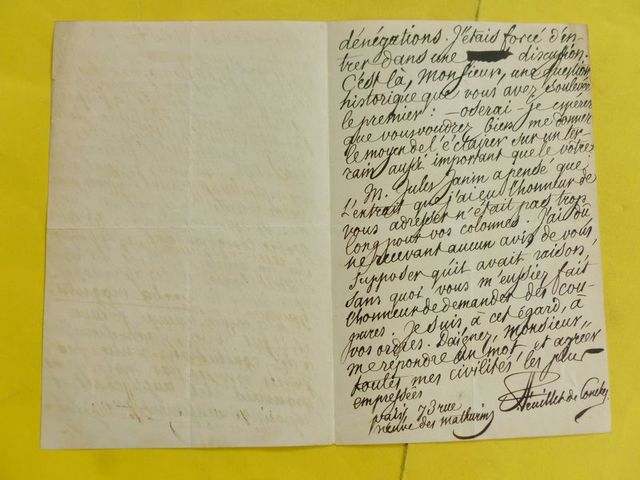 dénégations. J'étais forcé d'en-
trer dans une discussion.
C'est là, Monsieur, une question
historique que vous avez soulevée
le premier : — oserai-je espérer
que vous voudrez bien me donner
le moyen de l'éclairer sur un ter-
rain aussi important que le vôtre.
M. Jules Janin a pensé que
l'extrait que j'ai eu l'honneur de
vous adresser n'était pas trop
long pour vos colonnes. J'ai dû
ne recevant aucun avis de vous
supposer qu'il avait raison,
sans quoi vous m'eussiez fait
l'honneur de demander des cou-
pures. Je suis à cet égard, à
vos ordres. Daignez, Monsieur,
me répondre un mot et agréer
toutes mes civilités les plus
empressées
Feuillet de Conches
Paris 73 rue
neuve des Mathurins